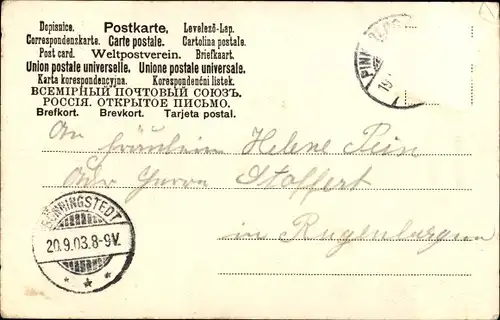 Dopisnice. Postkarte, Levelező-Lap.
Correspondenzkarte. Carte postale. Cartolina postale.
Post card. Weltpostverein. Briefkaart.
Union postale universelle. Unione postale universale.
Karta korespondencyjna. Korespondenčni listek.
ВСЕМІРНЫЙ ПОЧТОВЫЙ СОЮЗЪ.
РОССІЯ. ОТКРЫТОЕ ПИСЬМО.
Brefkort. Brevkort. Tarjeta postal.
PINN
An Fräulein Helene Fein
Herrn Stoffert
in Rugenbergen
BÖNNINGSTEDT
20.9.03.8-9V.